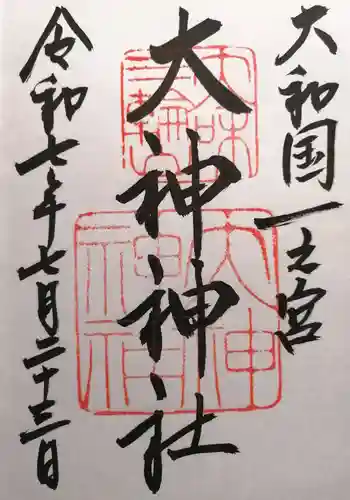 大和国一之宮
大神神社
令和七年七月二十三日